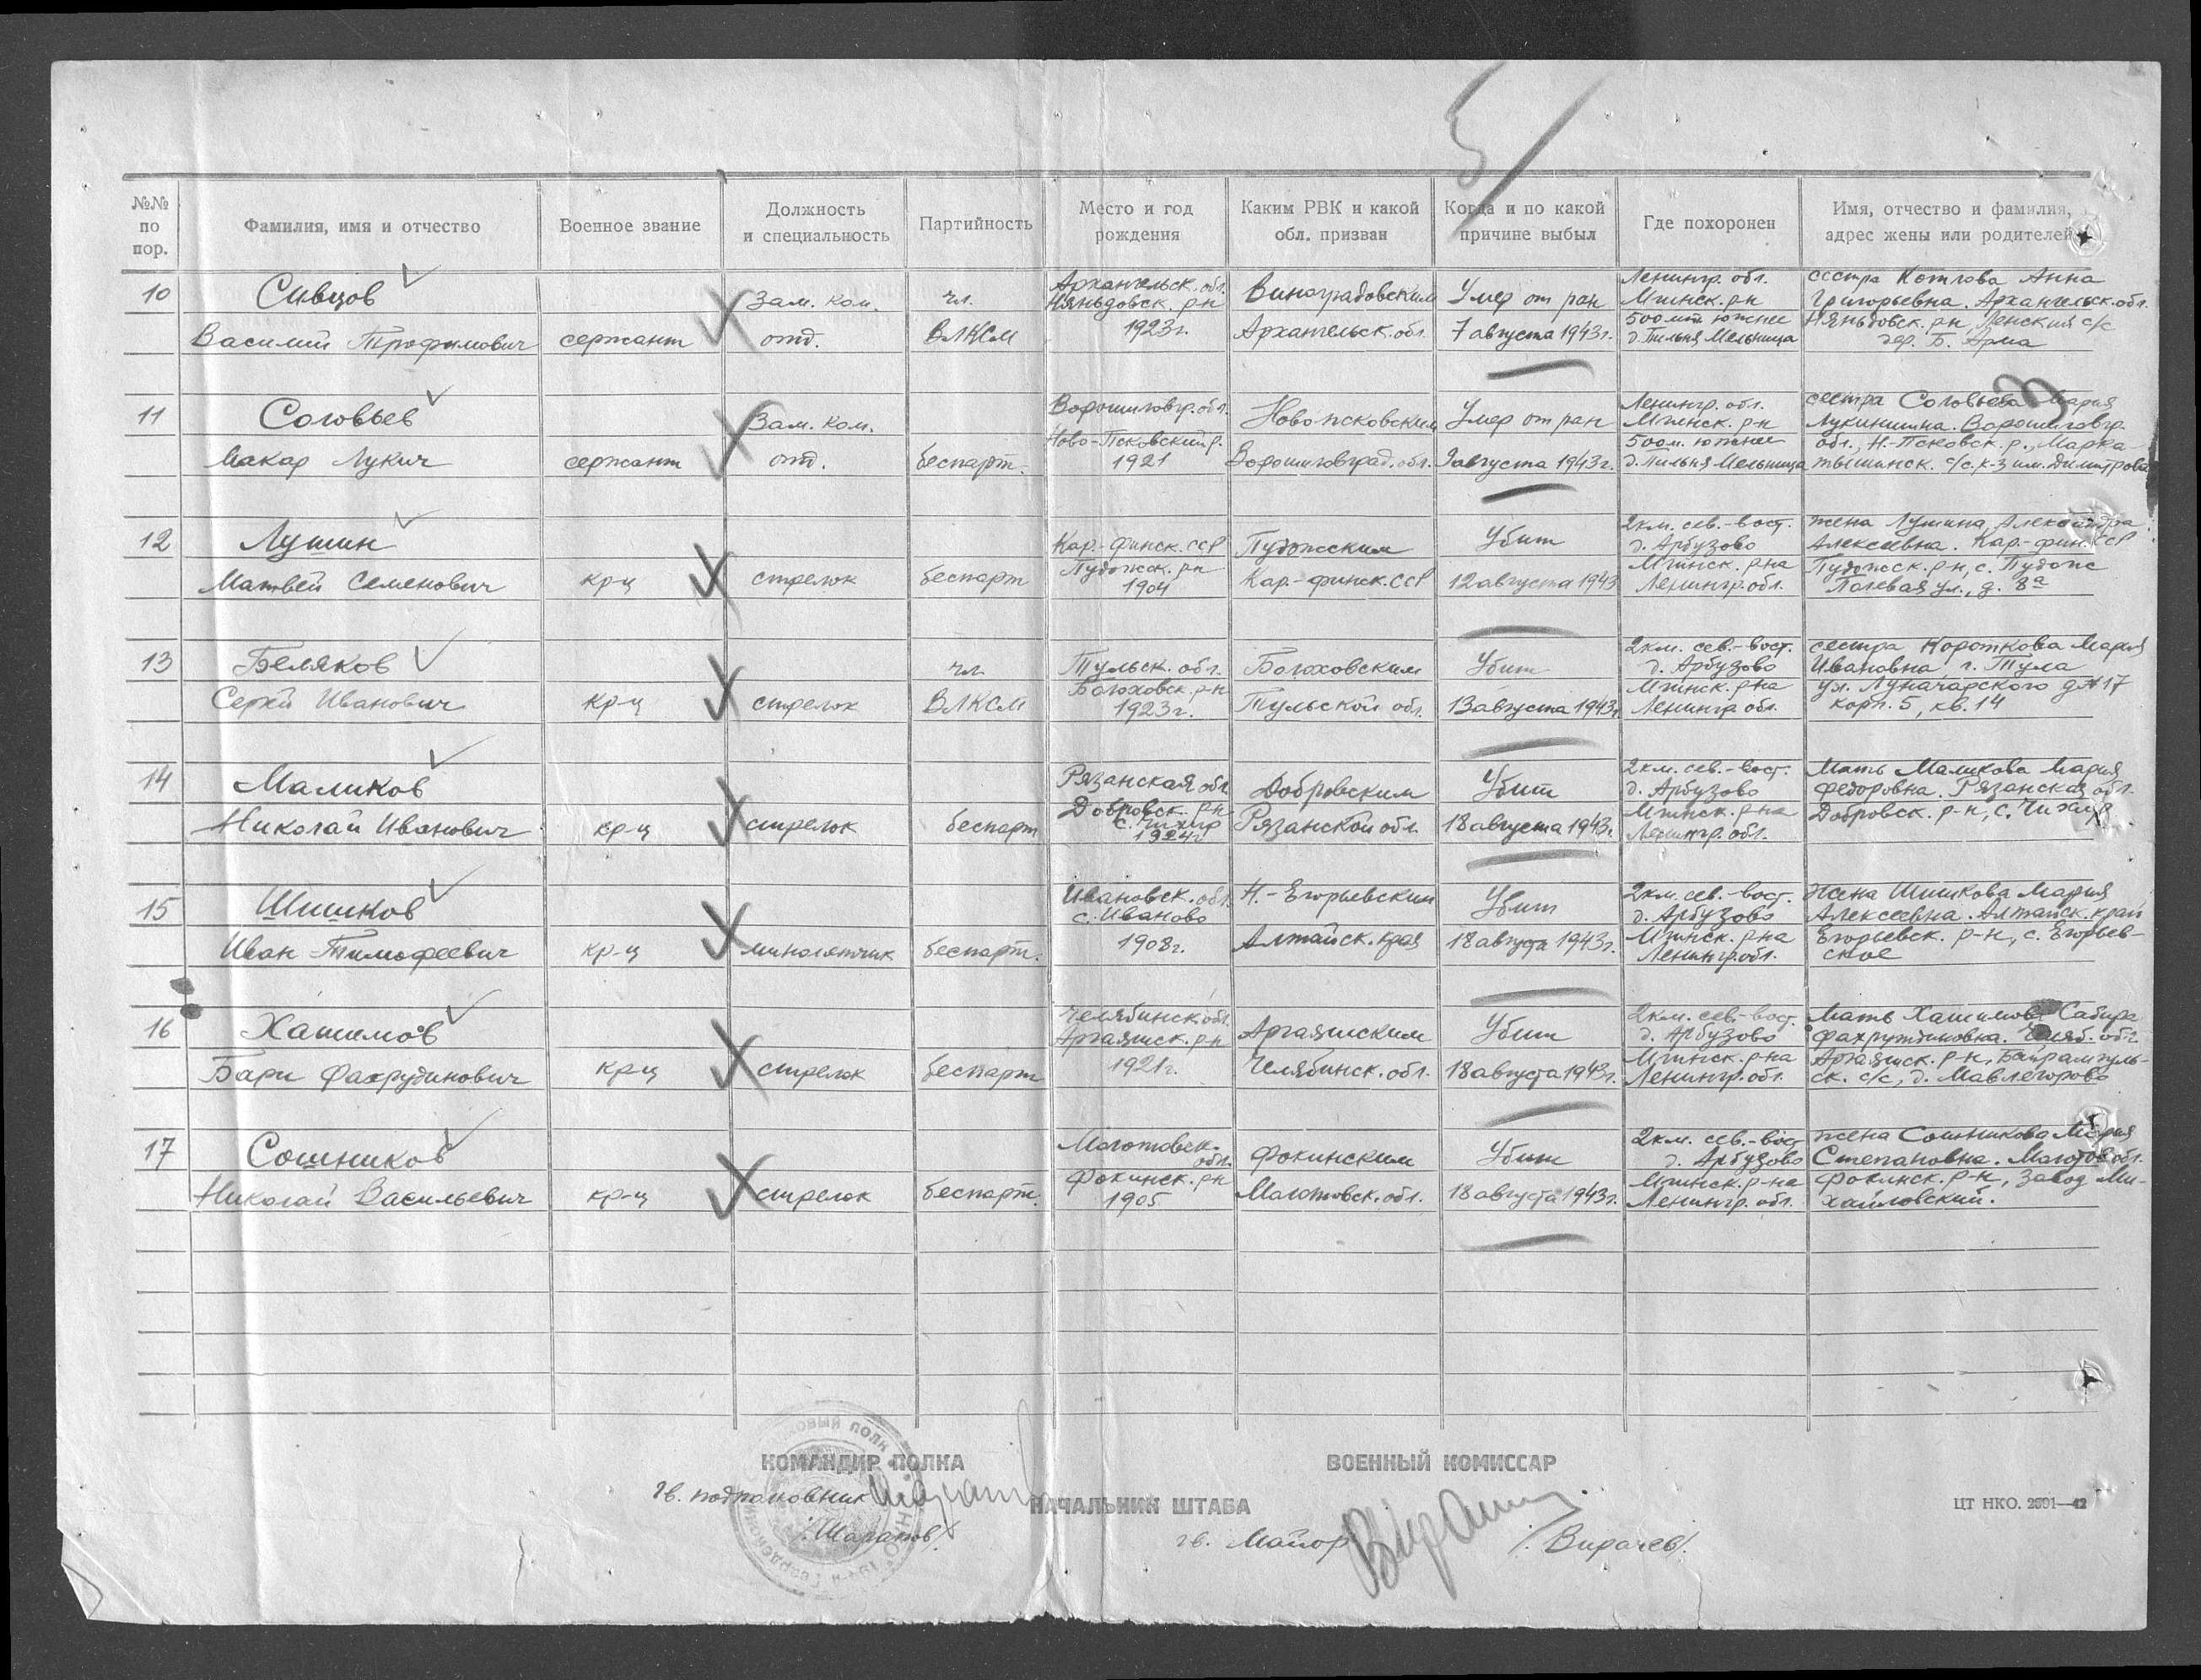 5/
№№ по пор.
Фамилия, имя и отчество
Военное звание
Должность и специальность
Партийность
Место и год рождения
Каким РВК и какой обл. призван
Когда и по какой причине выбыл
Где похоронен
Имя, отчество и фамилия, адрес жены или родителей
10
Сивцов
Василий Трофимович
сержант
Зам. ком.
отд.
чл.
ВЛКСМ
Архангельск. обл.
Няньдовск. р-н
1923г.
Виноградовским
Архангельск. обл.
Умер от ран
7 августа 1943г.
Ленингр. обл.
Мгинск. р-н
500 мт южнее
д. Пильня Мельница
сестра Котлова Анна
Григорьевна. Архангельск. обл.
Няньдовск. р-н, Ленский с/с
дер. Б. Арма
11
Соловьев
Макар Лукич
сержант
Зам. ком.
отд.
беспарт.
Ворошиловгр. обл.
Ново-Псковский р.
1921
Новопсковским
Ворошиловград. обл.
Умер от ран
9 августа 1943г.
Ленингр. обл.
Мгинск. р-н
500м. южнее
д. Пильня Мельница
сестра Соловьева Мария
Лукинишна. Ворошиловгр.
обл., Н.-Псковск. р.,
с/с. к-з им. Димитрова
12
Лушин
Матвей Семенович
кр-ц
стрелок
беспарт
Кар.-финск. ССР
Пудожск. р-н
1904
Пудожским
Кар.-финск. ССР
Убит
12 августа 1943
2км. сев.-вост.
д. Арбузово
Мгинск. р-на
Ленингр. обл.
жена Лушина, Александра
Алексеевна. Кар.-фин. ССР
Пудожск. р-н, с. Пудож
Полевая ул., д. 8а
13
Беляков
Сергей Иванович
кр-ц
стрелок
чл.
ВЛКСМ
Тульск. обл.
Болоховск. р-н
1923г.
Болоховским
Тульской обл.
Убит
13 августа 1943г.
2км. сев.-вост.
д. Арбузово
Мгинск. р-на
Ленингр. обл.
сестра Короткова Мария
Ивановна г. Тула
ул. Луначарского д.№17
корп. 5, кв. 14
14
Маликов
Николай Иванович
кр-ц
стрелок
беспарт
Рязанская обл
Добровск. р-н
1924г
Добровским
Рязанской обл.
Убит
18 августа 1943г.
2км. сев.-вост.
д. Арбузово
Мгинск. р-на
Ленингр. обл.
Мать Маликова Мария
Федоровна. Рязанская обл.
Добровск. р-н, с.
15
Шишков
Иван Тимофеевич
кр-ц
минометчик
беспарт.
Ивановск. обл.
с. Иваново
1908г.
Н.-Егорьевским
Алтайск. края
Убит
18 августа 1943г.
2км. сев.-вост.
д. Арбузово
Мгинск. р-на
Ленингр. обл.
Жена Шишкова Мария
Алексеевна. Алтайск. край
Егорьевск. р-н, с. Егорьев-
ское
16
Хашимов
Бари Фахрудинович
кр-ц
стрелок
беспарт
Челябинск. обл.
Аргаяшск. р-н
1921г.
Аргаяшским
Челябинск. обл.
Убит
18 августа 1943г.
2км. сев.-вост.
д. Арбузово
Мгинск. р-на
Ленингр. обл.
Мать Хашимова Сабира
Фахрутдиновна. Челяб. обл.
Аргаяшск. р-н, Байрамгуль-
ск. с/с, д.
17
Сошников
Николай Васильевич
кр-ц
стрелок
беспарт.
Молотовск.
обл.
Фокинск. р-н
1905
Фокинским
Молотовск. обл.
Убит
18 августа 1943г.
2км. сев.-вост
д. Арбузово
Мгинск. р-на
Ленингр. обл.
жена Сошникова Мария
Степановна. Молотов. обл.
Фокинск. р-н, Завод Ми-
хайловский.
КОМАНДИР ПОЛКА
гв. подполковник
/Шарапов/
НАЧАЛЬНИК ШТАБА
гв. Майор
ВОЕННЫЙ КОМИССАР
/Вирачев/.
ЦТ НКО. 2591—42